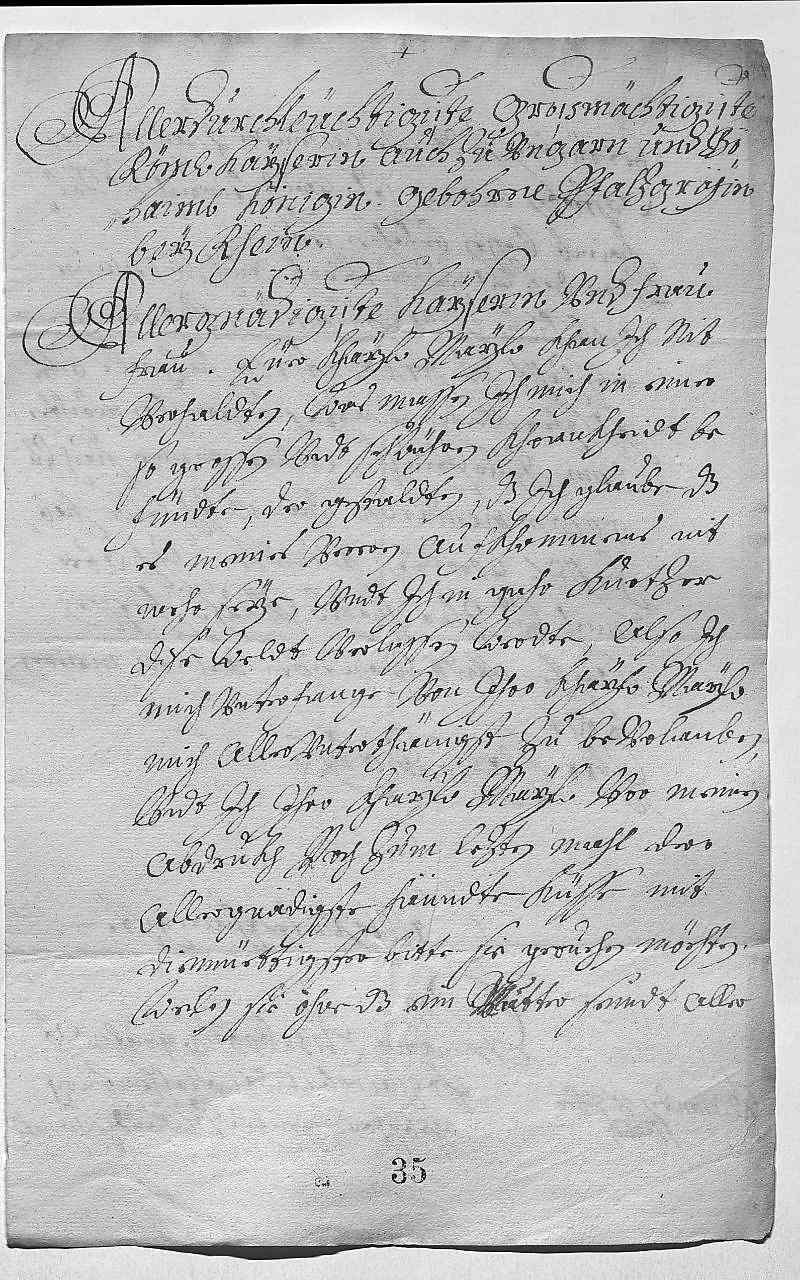 Allerdürchleüchtigiste Grosmächtigiste
Röml: Kayserin auch zu Vngarn und Bö
haimb Königin. gebohrne Pfaltzgräfin
bey Rhein.
Allergnädigiste Kayserin Vnd frau
frau. Euer Khayßl: Mayßl: Khan Ich Nit
Verhaldten, was massen Ich mich in einer
so grossen Vndt schwähren Khrankheidt be
fündte, der gestaldten, dß Ich glaube dß
es meines aufkhommens nit
mehr seye, Vndt Ich in gahr Kurtzer
dise Weldt Verlassen werdte, Also Ich
mich Vnterfange Von Ihro Khayßl: Mayßl:
mich Aller Vnterthänigst zu beVrlauben,
Vndt Ich Ihro Khayßl: Mayßl: Vor meinen
Abdrukh Noch zum lezten mahl dero
Allergnädigste händte Küsse mit
diemüettigster bitte sie geruhen möchten.
Weilen sie ohne dß ein Mutter seindt aller
35